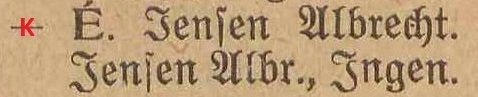 K É. Jensen Albrecht.
Jensen Albr., Ingen.